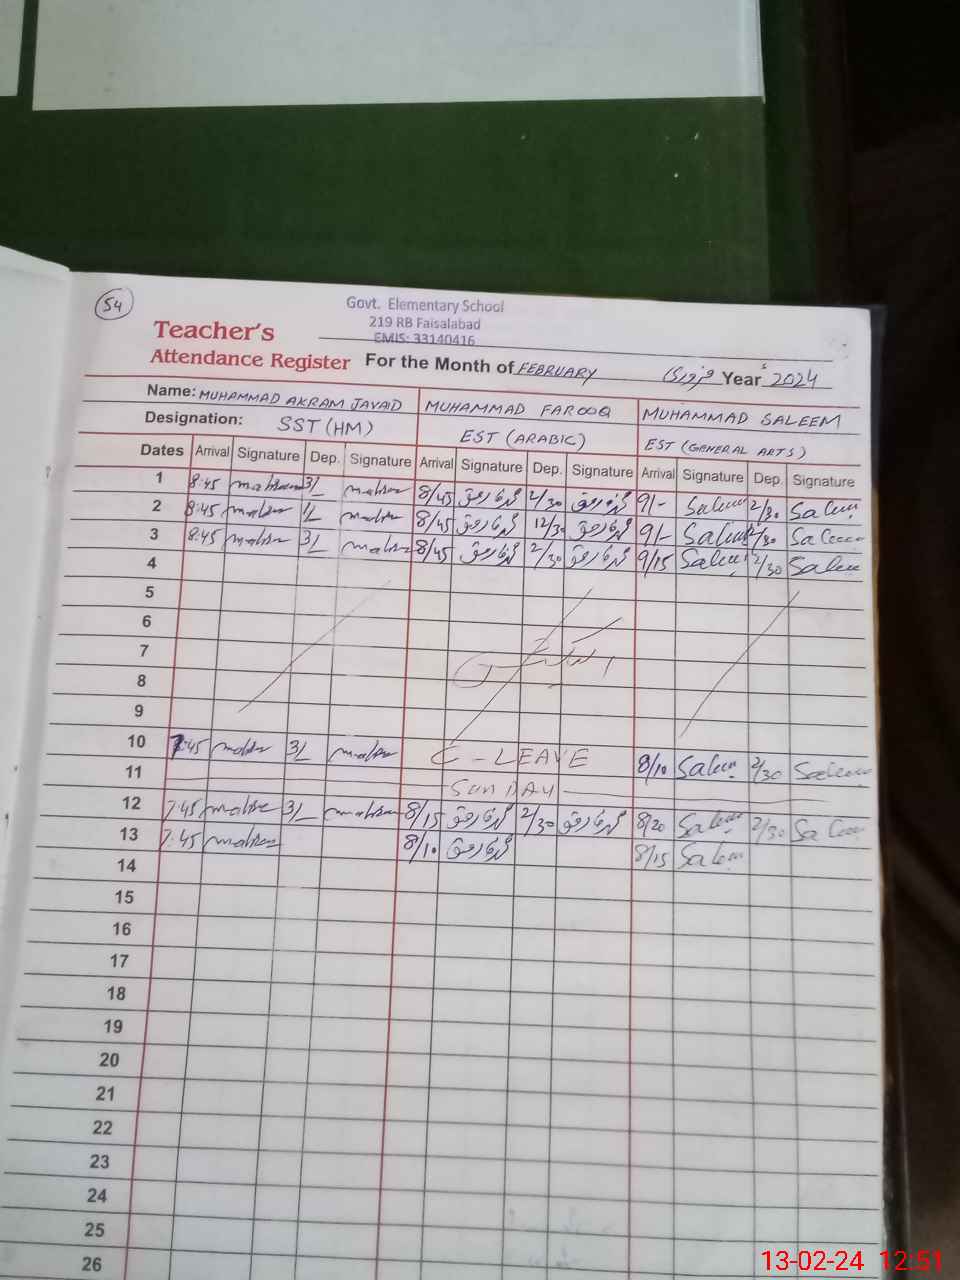 54
Govt. Elementary School
219 RB Faisalabad
EMIS: 33140416
Teacher's
Attendance Register For the Month of FEBRUARY فروری Year 2024
Name: MUHAMMAD AKRAM JAVAID MUHAMMAD FAROOQ MUHAMMAD SALEEM
Designation: SST (HM) EST (ARABIC) EST (GENERAL ARTS)
Dates Arrival Signature Dep. Signature Arrival Signature Dep. Signature Arrival Signature Dep. Signature
1 8:45 3/ 8/45 2/30 9/- Saleem 2/30 Saleem
2 8:45 1/ 8/45 12/30 9/- Saleem 2/30 Saleem
3 8:45 3/ 8/45 2/30 9/15 Saleem 2/30 Saleem
4
5
6
7
8
9
10 7:45 3/ C-LEAVE 8/10 Saleem 2/30 Saleem
11 SUNDAY
12 7:45 3/ 8/15 2/30 8/20 Saleem 2/30 Saleem
13 7:45 8/10 8/15 Saleem
14
15
16
17
18
19
20
21
22
23
24
25
26
13-02-24 12:51